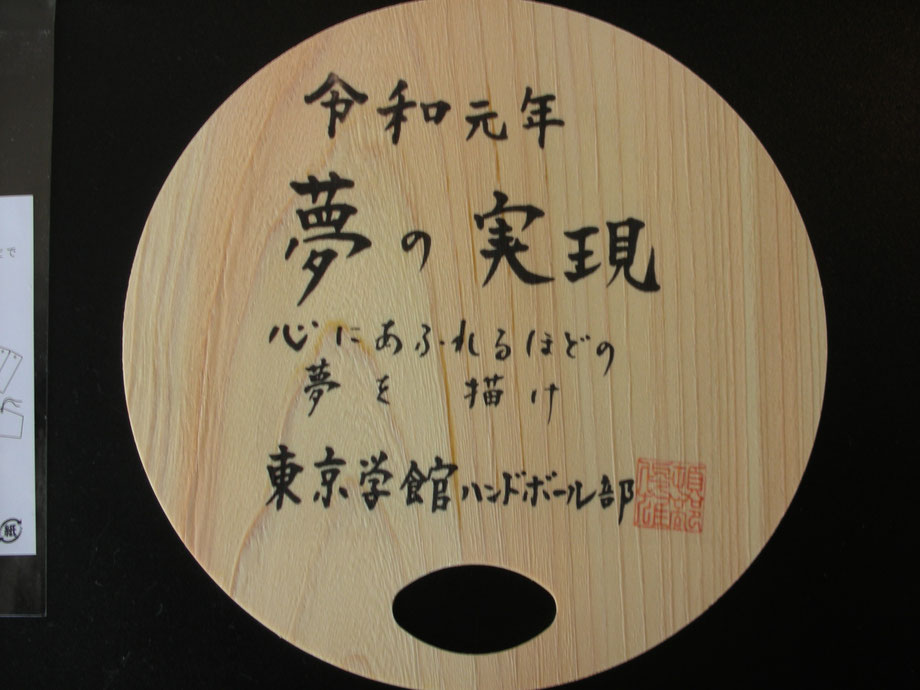 令和元年
夢の実現
心にあふれるほどの
夢を描け
東京学館ハンドボール部
紙